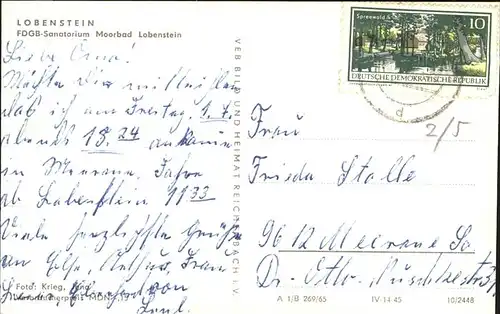 LOBENSTEIN
FDGB-Sanatorium Moorbad Lobenstein
Liebe Oma!
Möchte Dir mitteilen
daß ich am Freitag, 1.7.
abends 18.24 ankomme
in Meerane. Fahre
ab Lobenstein 1533
Viele herzlichste Grüße
an Frau
Foto: Krieg, Jena
Verbraucherpreis MDN
VEB BILD UND HEIMAT REICHENBACH i. V.
Spreewald
10
DEUTSCHE DEMOKRATISCHE REPUBLIK
2/5
Frau
Frieda Stolle
9612 Meerane Sa.
Dr.-Otto-Nuschkestr.
A 1/B 269/65 IV-14-45 10/2448